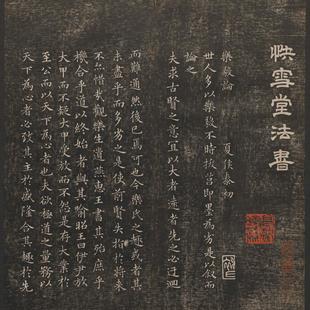 快雪堂法書
樂毅論
夏侯泰初
世人多以樂毅不時拔莒即墨為劣是以叙而
論之
夫求古賢之意宜以大者遠者先之必迂迴
而難通然後已焉可也今樂氏之趣或者其
未盡乎而多劣之是使前賢失指於將來
不亦惜哉觀樂生遺燕惠王書其殆庶乎
機合乎道以終始者與其喻昭王曰伊尹放
大甲而不疑大甲受放而不怨是存大業於
至公而以天下為心者也夫欲極道之量務以
天下為心者必致其主於盛隆合其趣於先